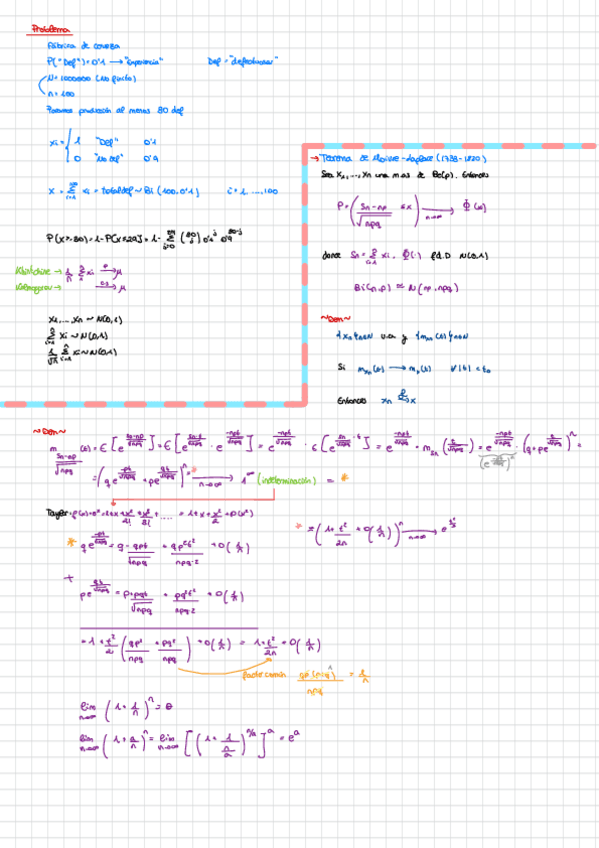 Problema
Fábrica de
P("Def")=0'1 → "experiencia" Def = "defectuosas"
N=1000000 (No finito)
n=100
al menos 80 def
xi = { 1 "Def" 0'1
0 "No def" 0'9
X = Σ xi = total def ~ Bi(100,0'1) i=1,...,100
P(X≥80)=1-P[X≤79]=1-
Khintchine → 1/n Σ xi →P μ
Kolmogorov → →c.s μ
X1,...,Xn ~ N(0,1)
Σ xi ~ N(0,1)
1/√n Σ xi ~ N(0,1)
→ Teorema de Moivre-Laplace
Sea X1,...,Xn una mas de Be(p). Entonces
P = ( Sn-np / √npq ≤ x ) →n→∞ Φ(x)
donde Sn = Σ xi, Φ(·) f.d.D N(0,1)
Bi(n,p) ≈ N(np,npq)
~Dem~
{Xn}n∈N v.a y {mxn(t)}n∈N
Si mxn(t) → mx(t) ∀|t|<t0
Entonces xn →L x
~Dem~
m Sn-np/√npq (t) = E[e Sn-np/√npq t] = E[e Sn·t/√npq · e -npt/√npq] = e -npt/√npq · E[e Sn/√npq · t] = e -npt/√npq · mSn(t/√npq) = e -npt/√npq · (q+pe t/√npq)^n =
= (q e -pt/√npq + pe qt/√npq)^n →n→∞ 1^∞ (indeterminación) = *
Taylor: f(x)=e^x=1+x+x²/2!+x³/3!+..... = 1+x+x²/2+o(x²)
* q e -pt/√npq = q - qpt/√npq + qp²t²/npq·2 + o(1/n)
* = (1+ t²/2n + o(1/n))^n →n→∞ e^t²/2
+
pe qt/√npq = p + pqt/√npq + pq²t²/npq·2 + o(1/n)
= 1 + t²/2 (qp²/npq + pq²/npq) + o(1/n) = 1 + t²/2n + o(1/n)
factor común qp(p+q)/npq = 1/n
lim n→∞ (1+1/n)^n = e
lim n→∞ (1+a/n)^n = lim n→∞ [(1+ 1/(n/a))^n/a]^a = e^a